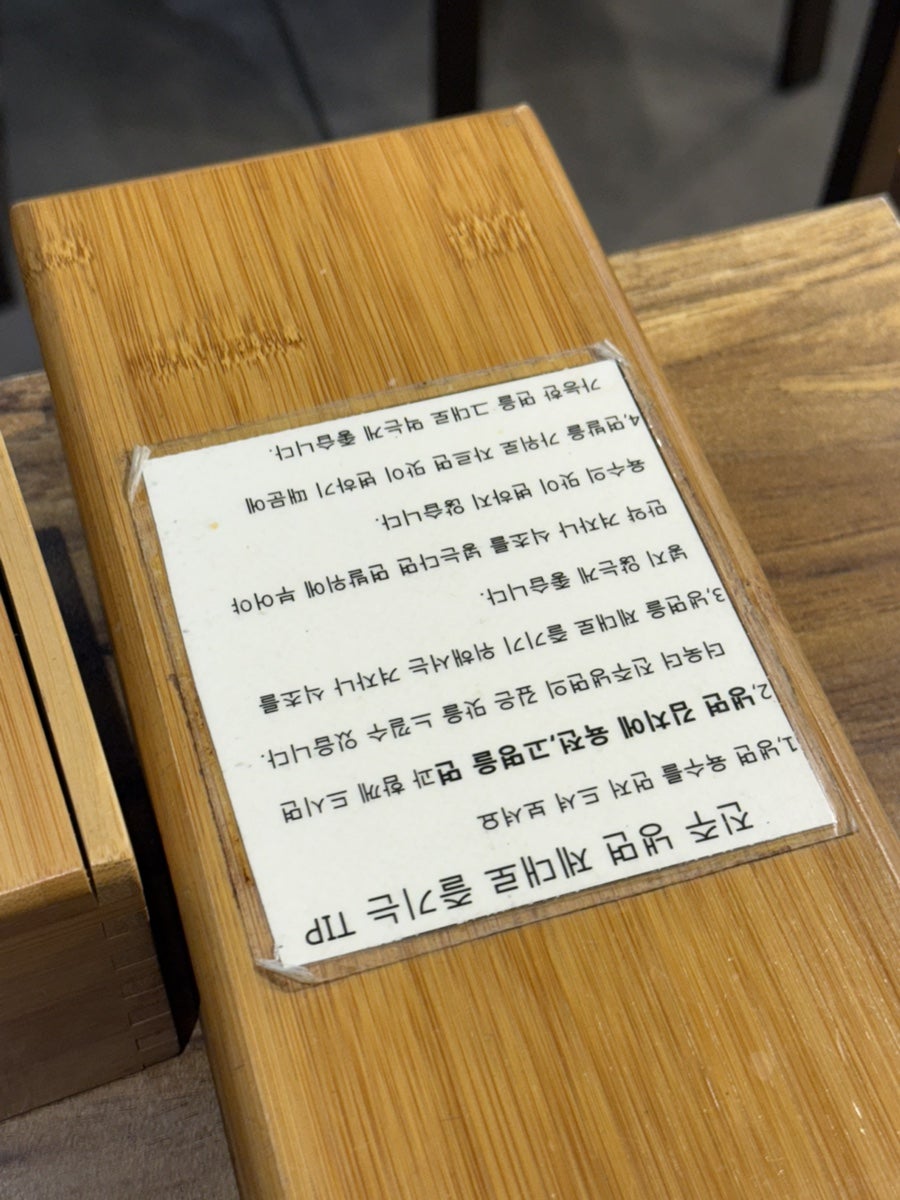 진주 냉면 제대로 즐기는 TIP
1,냉면 육수를 먼저 드셔 보셔요
2,냉면 김치에 육전,고명을 면과 함께 드시면
더욱더 진주냉면의 깊은 맛을 느낄수 있읍니다.
3,냉면을 제대로 즐기기 위해서는 겨자나 식초를
넣지 않는게 좋습니다.
만약 겨자나 식초를 넣는다면 면발위에 부어야
육수의 맛이 변하지 않습니다.
4,면발을 가위로 자르면 맛이 변하기 때문에
가능한 면을 그대로 먹는게 좋습니다.